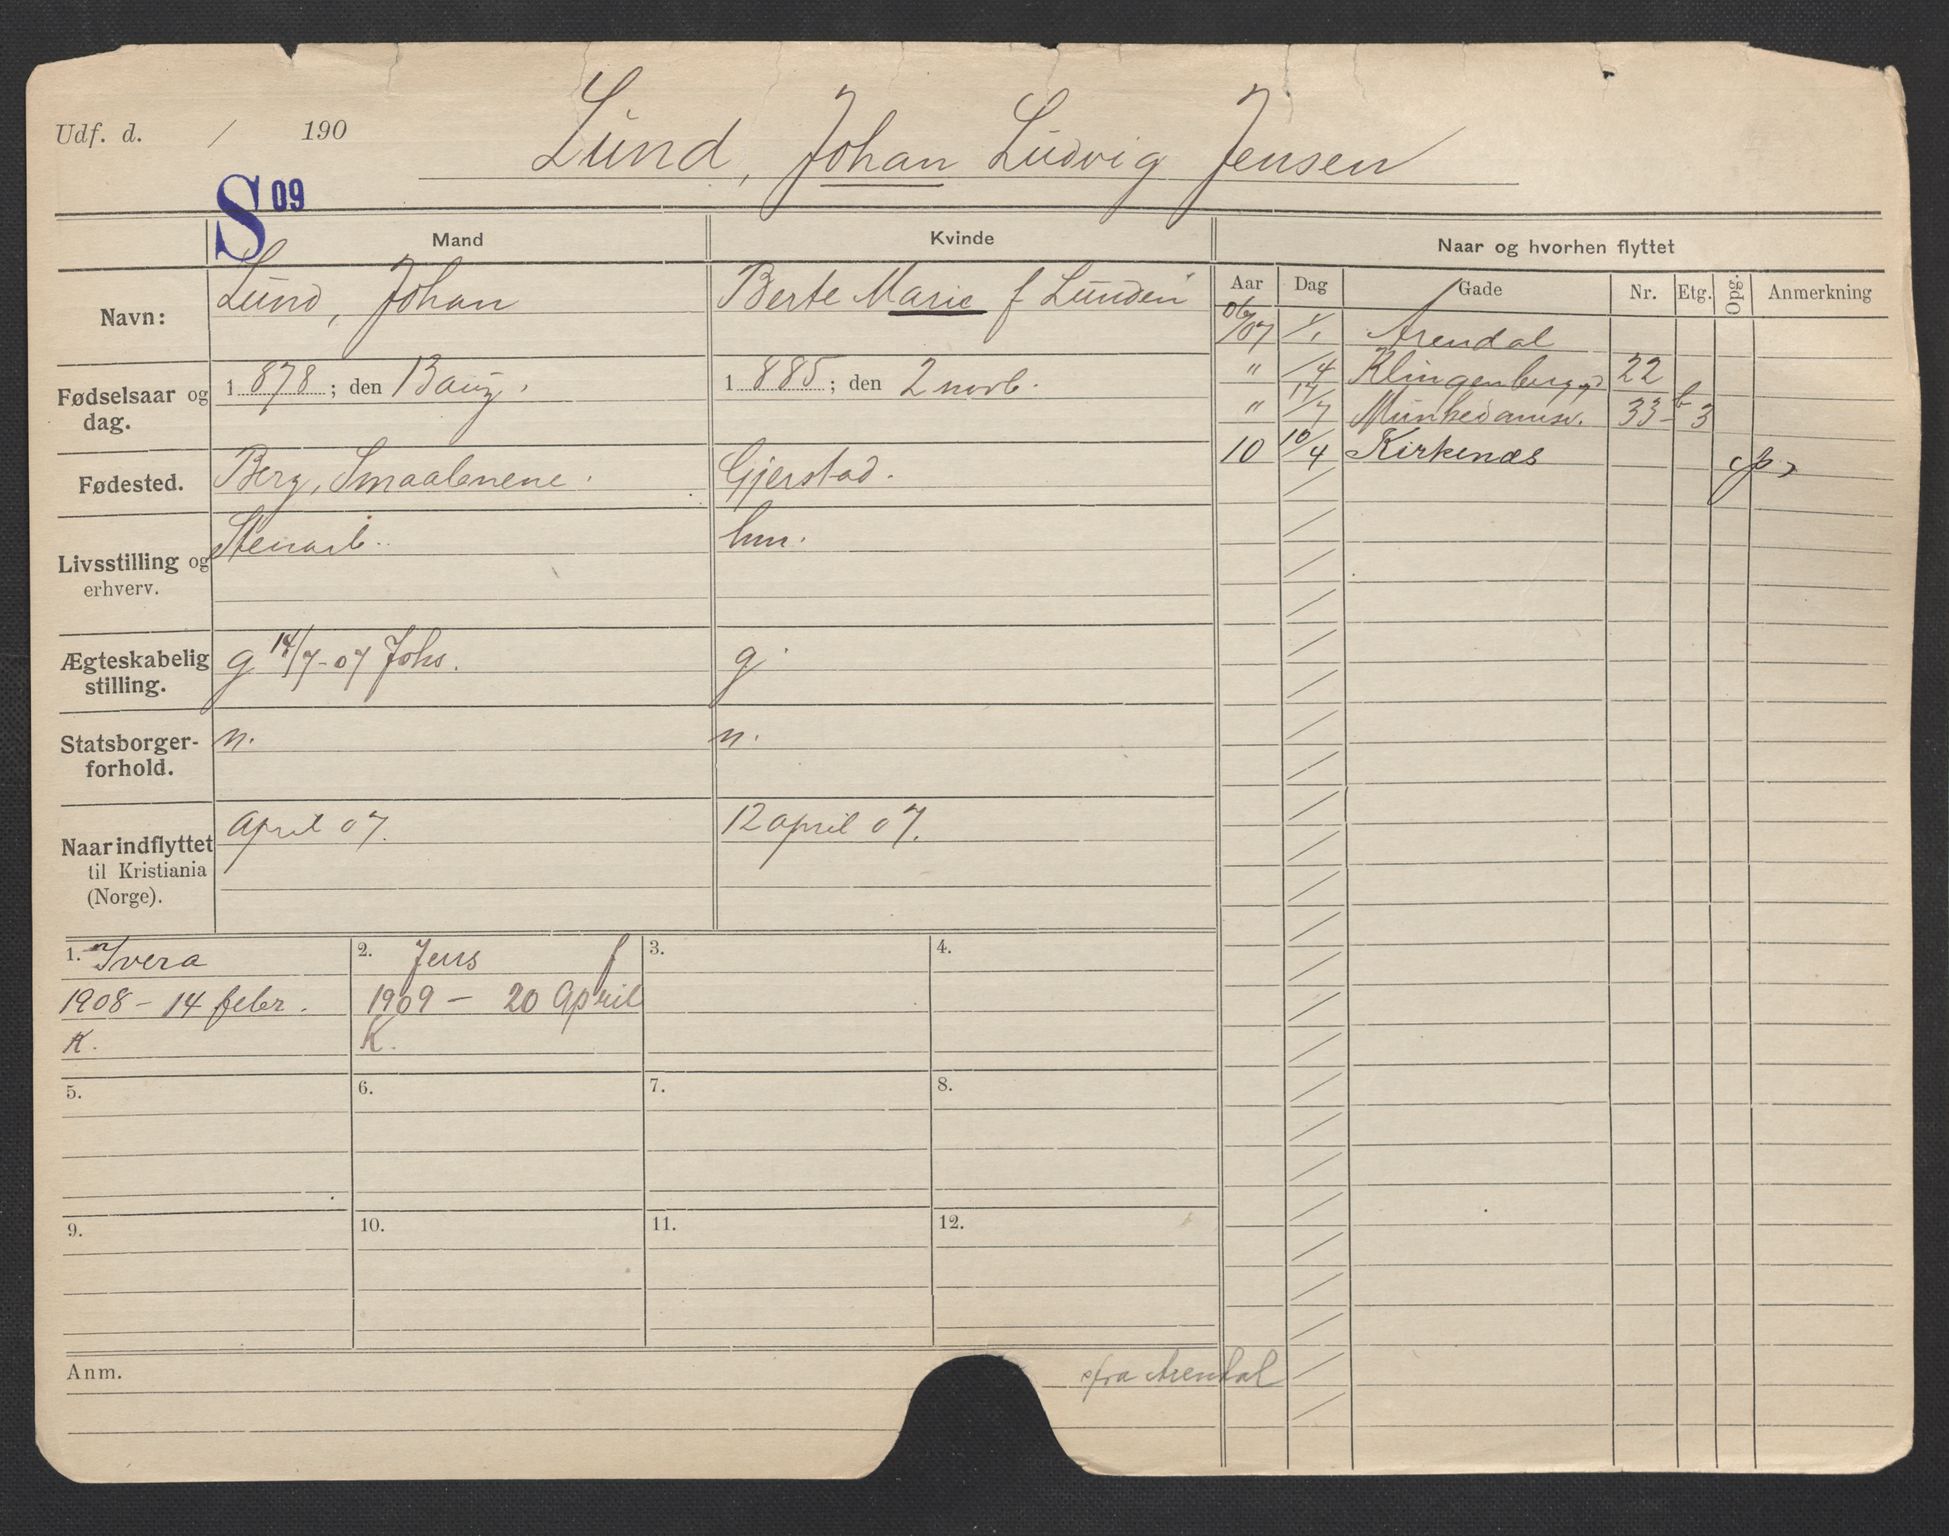 Udf. d. / 190
Lund, Johan Ludvig Jensen
S 09
Mand Kvinde Naar og hvorhen flyttet
Aar Dag Gade Nr. Etg. Opg. Anmerkning
Navn: Lund, Johan Berte Marie f Lunden
Fødselsaar og dag. 1 878 ; den 13 aug. 1 885 ; den 2 novb.
Fødested. Berg, Smaalenene. Gjerstad.
Livsstilling og erhverv. Stenarb. hm.
Ægteskabelig stilling. g 14/7-07 Johs. g.
Statsborger-forhold. n. n.
Naar indflyttet til Kristiania (Norge). April 07. 12 april 07.
06/07 1/1 Arendal
" /4 Klingenbergg 22
" 14/7 Munkedamsv. 33 b 3
10 10/4 Kirkenæs
1. Ivera
1908 - 14 febr.
K.
2. Jens f
1909 - 20 April
K.
3.
4.
5.
6.
7.
8.
9.
10.
11.
12.
Anm.
fra Arendal